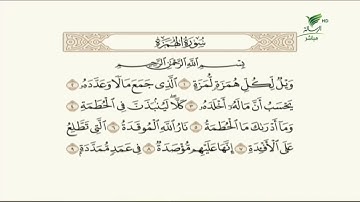 HD
الرسالة
مباشر
سُورَةُ الهُمَزَةِ
بِسْمِ اللَّهِ الرَّحْمَٰنِ الرَّحِيمِ
وَيْلٌ لِّكُلِّ هُمَزَةٍ لُّمَزَةٍ ١ الَّذِي جَمَعَ مَالًا وَعَدَّدَهُ ٢
يَحْسَبُ أَنَّ مَالَهُ أَخْلَدَهُ ٣ كَلَّا لَيُنبَذَنَّ فِي الْحُطَمَةِ ٤
وَمَا أَدْرَىٰكَ مَا الْحُطَمَةُ ٥ نَارُ اللَّهِ الْمُوقَدَةُ ٦ الَّتِي تَطَّلِعُ
عَلَى الْأَفْئِدَةِ ٧ إِنَّهَا عَلَيْهِم مُّؤْصَدَةٌ ٨ فِي عَمَدٍ مُّمَدَّدَةٍ ٩